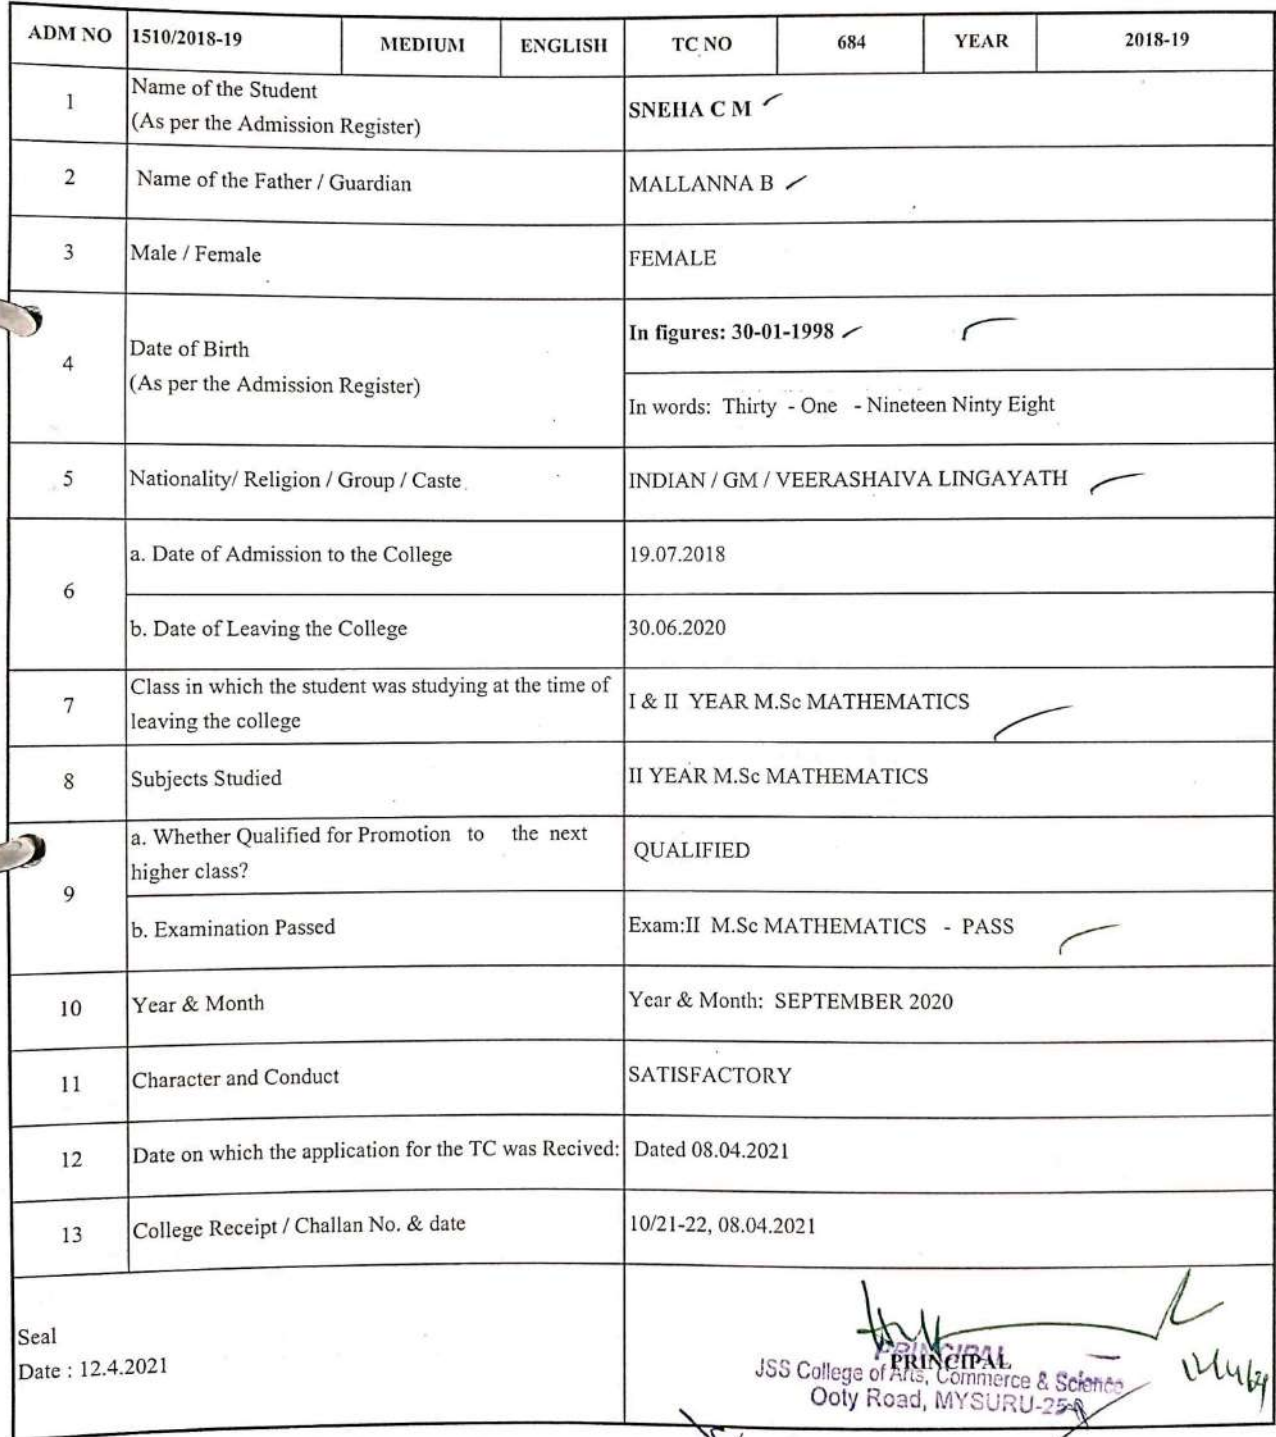 ADM NO 1510/2018-19 MEDIUM ENGLISH TC NO 684 YEAR 2018-19
1 Name of the Student
(As per the Admission Register) SNEHA C M
2 Name of the Father / Guardian MALLANNA B
3 Male / Female FEMALE
4 Date of Birth
(As per the Admission Register)
In figures: 30-01-1998
In words: Thirty - One - Nineteen Ninty Eight
5 Nationality/ Religion / Group / Caste INDIAN / GM / VEERASHAIVA LINGAYATH
6 a. Date of Admission to the College 19.07.2018
b. Date of Leaving the College 30.06.2020
7 Class in which the student was studying at the time of
leaving the college I & II YEAR M.Sc MATHEMATICS
8 Subjects Studied II YEAR M.Sc MATHEMATICS
9 a. Whether Qualified for Promotion to the next
higher class? QUALIFIED
b. Examination Passed Exam:II M.Sc MATHEMATICS - PASS
10 Year & Month Year & Month: SEPTEMBER 2020
11 Character and Conduct SATISFACTORY
12 Date on which the application for the TC was Recived: Dated 08.04.2021
13 College Receipt / Challan No. & date 10/21-22, 08.04.2021
Seal
Date : 12.4.2021
PRINCIPAL
PRINCIPAL
JSS College of Arts, Commerce & Science
Ooty Road, MYSURU-25